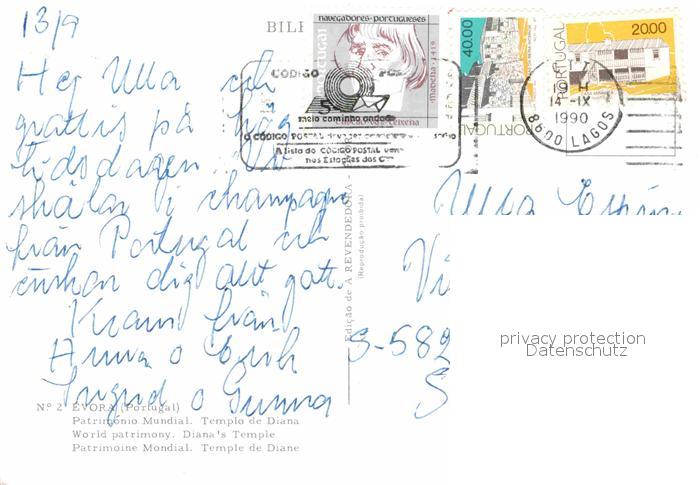 13/9
BILH
Hej Ulla och
grattis på
födsdagen. Vi
skålar i champagne
från Portugal och
önskar dig allt gott.
Kram från
Anna o Erik
Ingrid o Gunna
NAVEGADORES·PORTUGUESES
PORTUGAL
MADEIRA 1419
TEIXEIRA
40.00
PORTUGAL
PORTUGAL
20.00
CÓDIGO POS
meio caminho andado
O CÓDIGO POSTAL
A lista do CÓDIGO POSTAL
nas Estações dos C
14-IX
1990
8600 LAGOS
Ulla
Vi
S-582
S
Edição de A REVENDEDORA -
(Reprodução proibida)
privacy protection
Datenschutz
Nº 2 ÉVORA (Portugal)
Património Mundial. Templo de Diana
World patrimony. Diana's Temple
Patrimoine Mondial. Temple de Diane